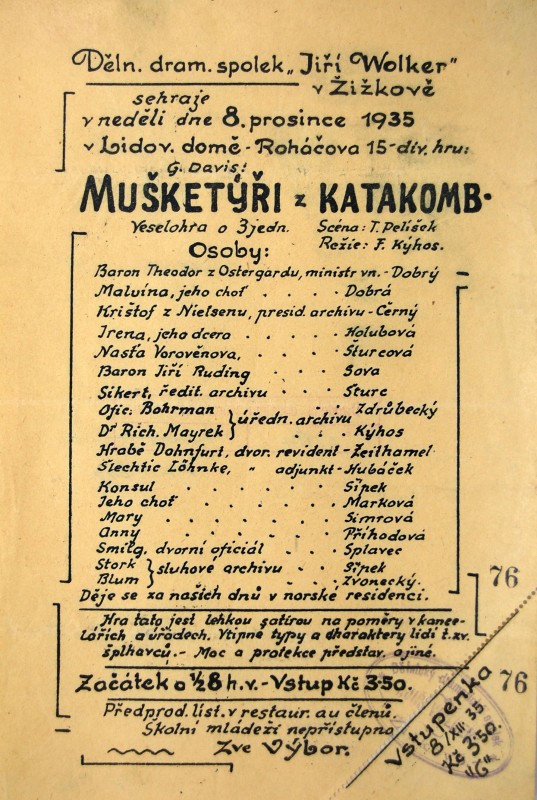 Děln. dram. spolek „Jiří Wolker"
v Žižkově
sehraje
v neděli dne 8. prosince 1935
v Lidov. domě - Roháčova 15 - div. hru:
G. Davis:
MUŠKETÝŘI z KATAKOMB.
Veselohra o 3 jedn.
Scéna: T. Pelíšek
Režie: F. Kýhos.
Osoby:
Baron Theodor z Ostergardu, ministr vn. - Dobrý
Malvína, jeho choť . . . . Dobrá
Krištof z Nielsenu, presid. archivu - Černý
Irena, jeho dcera . . . . . Holubová
Nasťa Vorověnova, . . . . Šturcová
Baron Jiří Ruding . . . . Sova
Sikert, ředit. archivu . . . Šturc
Ofic. Bohrman } úředn. archivu . . Zdrůbecký
Dr Rich. Mayrek } . . . Kýhos
Hrabě Dohnfurt, dvor. revident - Zeithamel
Šlechtic Löhnke, „ adjunkt - Hubáček
Konsul . . . . . . Šípek
Jeho choť . . . . . . Marková
Mary . . . . . . . Šimrová
Anny . . . . . . . Příhodová
Smilg, dvorní oficiál . . Splavec
Stork } sluhové archivu . . Šípek
Blum } . . Zvonecký.
Děje se za našich dnů v norské residenci.
Hra tato jest lehkou satírou na poměry v kance-
lářích a úřadech. Vtipné typy a charaktery lidí t. zv.
šplhavců. - Moc a protekce představ. a jiné.
Začátek o ½8 h. v. - Vstup Kč 3·50.
Předprod. líst. v restaur. a u členů.
Školní mládeži nepřístupno
Zve Výbor.
76
76
Vstupenka
8/XII. 35
Kč 3·50.
"G"